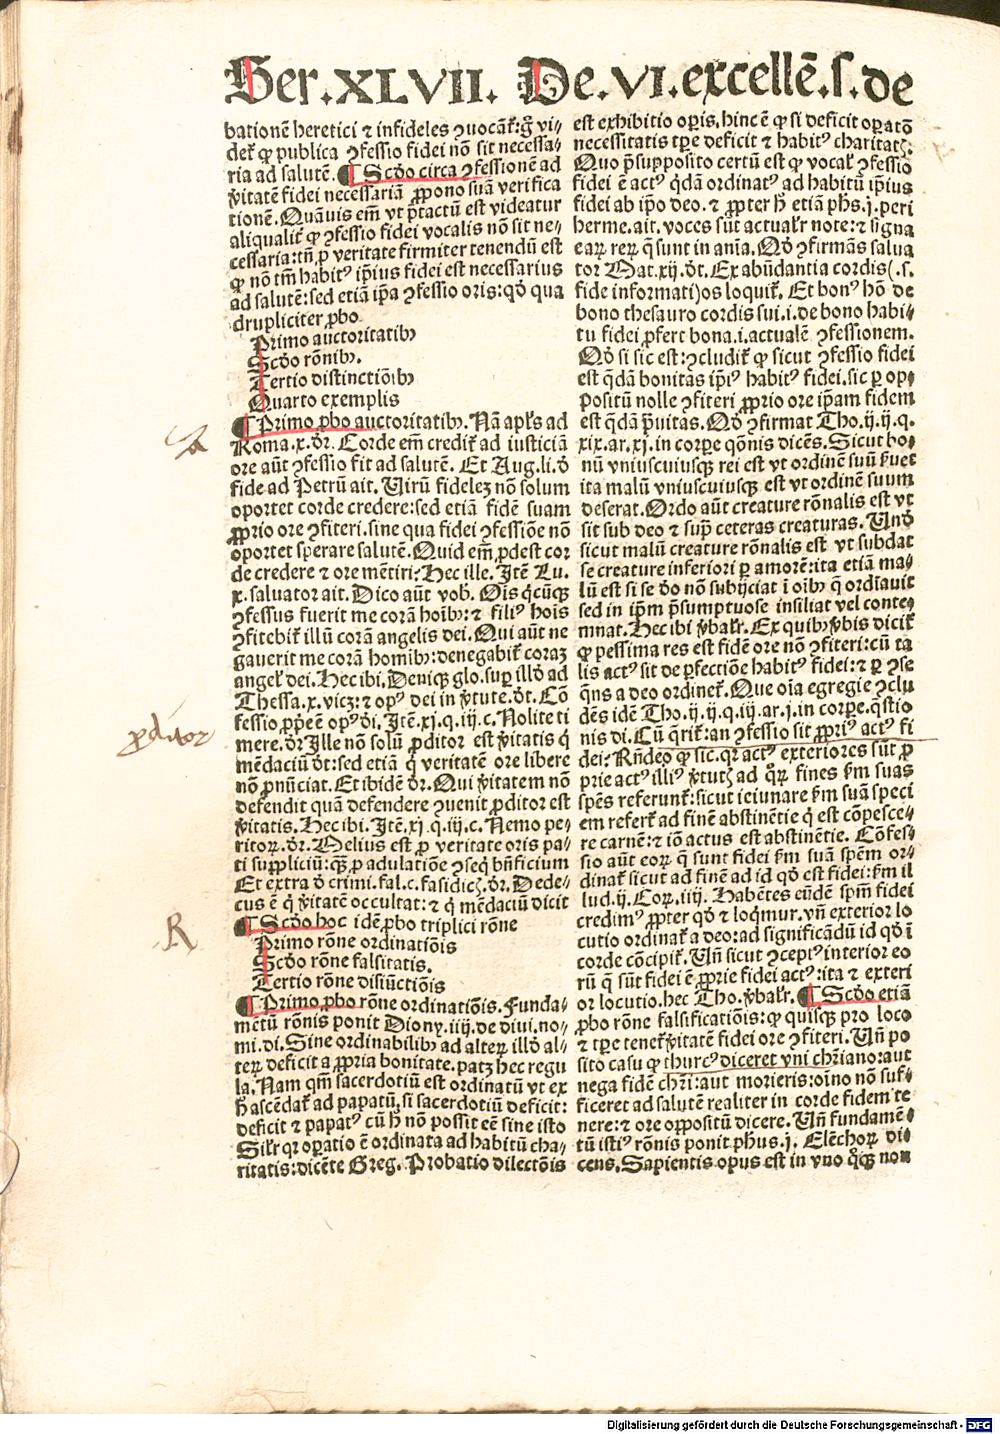 Ser.XLVII. De.VI.excellē.s.de
bationē heretici ⁊ infideles ꝯuocāt̄:gͦ vi⸗
det̄ ꝙ publica ꝯfessio fidei nō sit necessa⸗
ria ad salutē. ¶ Scd̄o circa ꝯfessionē ad
v̄itatē fidei necessariā ꝓpono suā verifica
tionē. Quāuis em̄ vt p̄tactū est videatur
aliqualit̄ ꝙ ꝯfessio fidei vocalis nō sit ne⸗
cessaria:tn̄ ꝓ veritate firmiter tenendū est
ꝙ nō tm̄ habitꝰ ip̄ius fidei est necessarius
ad salutē:sed etiā ip̄a ꝯfessio oris:qd̄ qua
drupliciter ꝓbo
Primo auctoritatibꝫ
Scd̄o rōnibꝫ.
Tertio distinctiōibꝫ
Quarto exemplis
¶ Primo ꝓbo auctoritatibꝫ. Nā apl̄s ad
Roma.x.dr̄. Corde em̄ credit̄ ad iusticiā
ore aūt ꝯfessio fit ad salutē. Et Aug.li.d̄
fide ad Petrū ait. Uirū fidelez nō solum
oportet corde credere:sed etiā fidē suam
ꝓprio ore ꝯfiteri.sine qua fidei ꝯfessiōe nō
oportet sperare salutē. Quid em̄ ꝓdest cor
de credere ⁊ ore mētiri? Hec ille. Itē Lu.
x.saluator ait. Dico aūt vob. Oīs qͥcūqꝫ
ꝯfessus fuerit me corā hoībꝫ:⁊ filiꝰ hoīs
ꝯfitebit̄ illū corā angelis dei. Qui aūt ne
gauerit me corā homībꝫ:denegabit̄ coraz
angel̄ dei. Hec ibi. Deniqꝫ glo.sup̄ illd̄ ad
Thessa.x.vicz:⁊ opꝰ dei in v̄tute.dt̄. Cō
fessio ꝓp̄eē opꝰ d̄i. Itē.xj.q.iij.c. Nolite ti
mere.dr̄ Ille nō solū ꝓditor est v̄itatis qͥ
mēdaciū dt̄:sed etiā qͥ veritatē ore libere
nō ꝓnūciat. Et ibidē dr̄. Qui v̄itatem nō
defendit quā defendere ꝯuenit ꝓditor est
v̄itatis. Hec ibi. Itē.xj.q.iij.c. Nemo pe⸗
ritoꝝ.dr̄. Melius est ꝓ veritate oris pa⸗
ti suppliciū:qꝫ̄ ꝓ adulatiōe ꝯseqͥ bn̄ficium
Et extra d̄ crimi.fal.c.falsidicꝰ.dr̄. Dede⸗
cus ē qͥ v̄itatē occultat:⁊ qͥ mēdaciū dicit
¶ Scd̄o hoc idē ꝓbo triplici rōne
Primo rōne ordinatiōis
Scd̄o rōne falsitatis.
Tertio rōne distīctiōis
¶ Primo ꝓbo rōne ordinatiōis. Funda⸗
mētū rōnis ponit Diony.iiij.de diui.no⸗
mi.di. Sine ordinabilibꝫ ad alteꝝ illd̄ al⸗
teꝝ deficit a ꝓpria bonitate.patꝫ hec regu
la. Nam qm̄ sacerdotiū est ordinatū vt ex
h̄ ascēdat̄ ad papatū.si sacerdotiū deficit:
deficit ⁊ papatꝰ cū h̄ nō possit eē sine isto
Silr̄ qr oꝑatio ē ordinata ad habitū cha⸗
ritatis:dicēte Greg. Probatio dilectōis
est exhibitio oꝑis.hinc ē ꝙ si deficit oꝑatō
necessitatis tꝑe deficit ⁊ habitꝰ charitatꝭ.
Quo p̄supposito certū est ꝙ vocal̄ ꝯfessio
fidei ē actꝰ qͥdā ordinatꝰ ad habitū ip̄ius
fidei ab ip̄o deo.⁊ ꝓpter h̄ etiā ph̄s.j.peri
herme.ait. voces sūt actualr̄ note:⁊ signa
eaꝝ reꝝ q̄ sunt in aīa. Qd̄ ꝯfirmās salua
tor Mat.xij.dt̄. Ex abūdantia cordis(.s.
fide informati)os loquit̄. Et bonꝰ hō de
bono thesauro cordis sui.i.de bono habi⸗
tu fidei ꝓfert bona.i.actualē ꝯfessionem.
Qd̄ si sic est:ꝯcludit̄ ꝙ sicut ꝯfessio fidei
est qͥdā bonitas ip̄iꝰ habitꝰ fidei.sic ꝑ op⸗
positū nolle ꝯfiteri ꝓprio ore ip̄am fidem
est qͥdā p̄uitas. Qd̄ ꝯfirmat Tho.ij.ij.q.
xix.ar.xj.in corꝑe qōnis dicēs. Sicut bo⸗
nū vniuscuiusqꝫ rei est vt ordinē suū s̄uet
ita malū vniuscuiusqꝫ est vt ordinē suum
deserat. Ordo aūt creature rōnalis est vt
sit sub deo ⁊ sup̄ ceteras creaturas. Und̄
sicut malū creature rōnalis est vt subdat
se creature inferiori ꝑ amorē:ita etiā ma⸗
lū est si se d̄o nō subijciat ī oībꝫ q̄ ordīauit
sed in ip̄m p̄sumptuose insiliat vel conte⸗
mnat. Hec ibi v̄balr̄. Ex quibꝫ v̄bis dicit̄
ꝙ pessima res est fidē ore nō ꝯfiteri:cū ta
lis actꝰ sit de ꝑfectiōe habitꝰ fidei:⁊ ꝑ ꝯse
qn̄s a deo ordinet̄. Que oīa egregie ꝯclu
dēs idē Tho.ij.ij.q.iij.ar.j.in corꝑe.qͣstio
nis di. Cū qͣrit̄:an ꝯfessio sit ꝓpriꝰ actꝰ fi
dei? Rn̄deo ꝙ sic.qr actꝰ exteriores sūt ꝓ
prie actꝰ illiꝰ v̄tutꝭ ad qͣꝝ fines s̄m suas
spēs referunt̄:sicut ieiunare s̄m suā speci
em refert̄ ad finē abstinētie qͥ est cōpesce⸗
re carnē:⁊ iō actus est abstinētie. Cōfes⸗
sio aūt eoꝝ q̄ sunt fidei s̄m suā spēm or⸗
dinat̄ sicut ad finē ad id qd̄ est fidei:s̄m il
lud.ij.Coꝝ.iiij. Habētes eūdē spm̄ fidei
credimꝰ ꝓpter qd̄ ⁊ loqͥmur.vn̄ exterior lo
cutio ordinat̄ a deo:ad significādū id qd̄ ī
corde cōcipit̄. Un̄ sicut ꝯceptꝰ interior eo
rū q̄ sūt fidei ē ꝓprie fidei actꝰ:ita ⁊ exteri
or locutio.hec Tho.v̄balr̄. ¶ Scd̄o etiā
ꝓbo rōne falsificatiōis:ꝙ quisqꝫ pro loco
⁊ tꝑe tenet̄ v̄itatē fidei ore ꝯfiteri. Un̄ po
sito casu ꝙ thurcꝰ diceret vni chr̄iano:aut
nega fidē chr̄i:aut morieris:oīno nō suf⸗
ficeret ad salutē realiter in corde fidem te
nere:⁊ ore oppositū dicere. Un̄ fundamē⸗
tū istiꝰ rōnis ponit ph̄us.j. Elēchoꝝ di⸗
cens. Sapientis opus est in vno qͦqꝫ non
ꝓditor
R
Digitalisierung gefördert durch die Deutsche Forschungsgemeinschaft - DFG